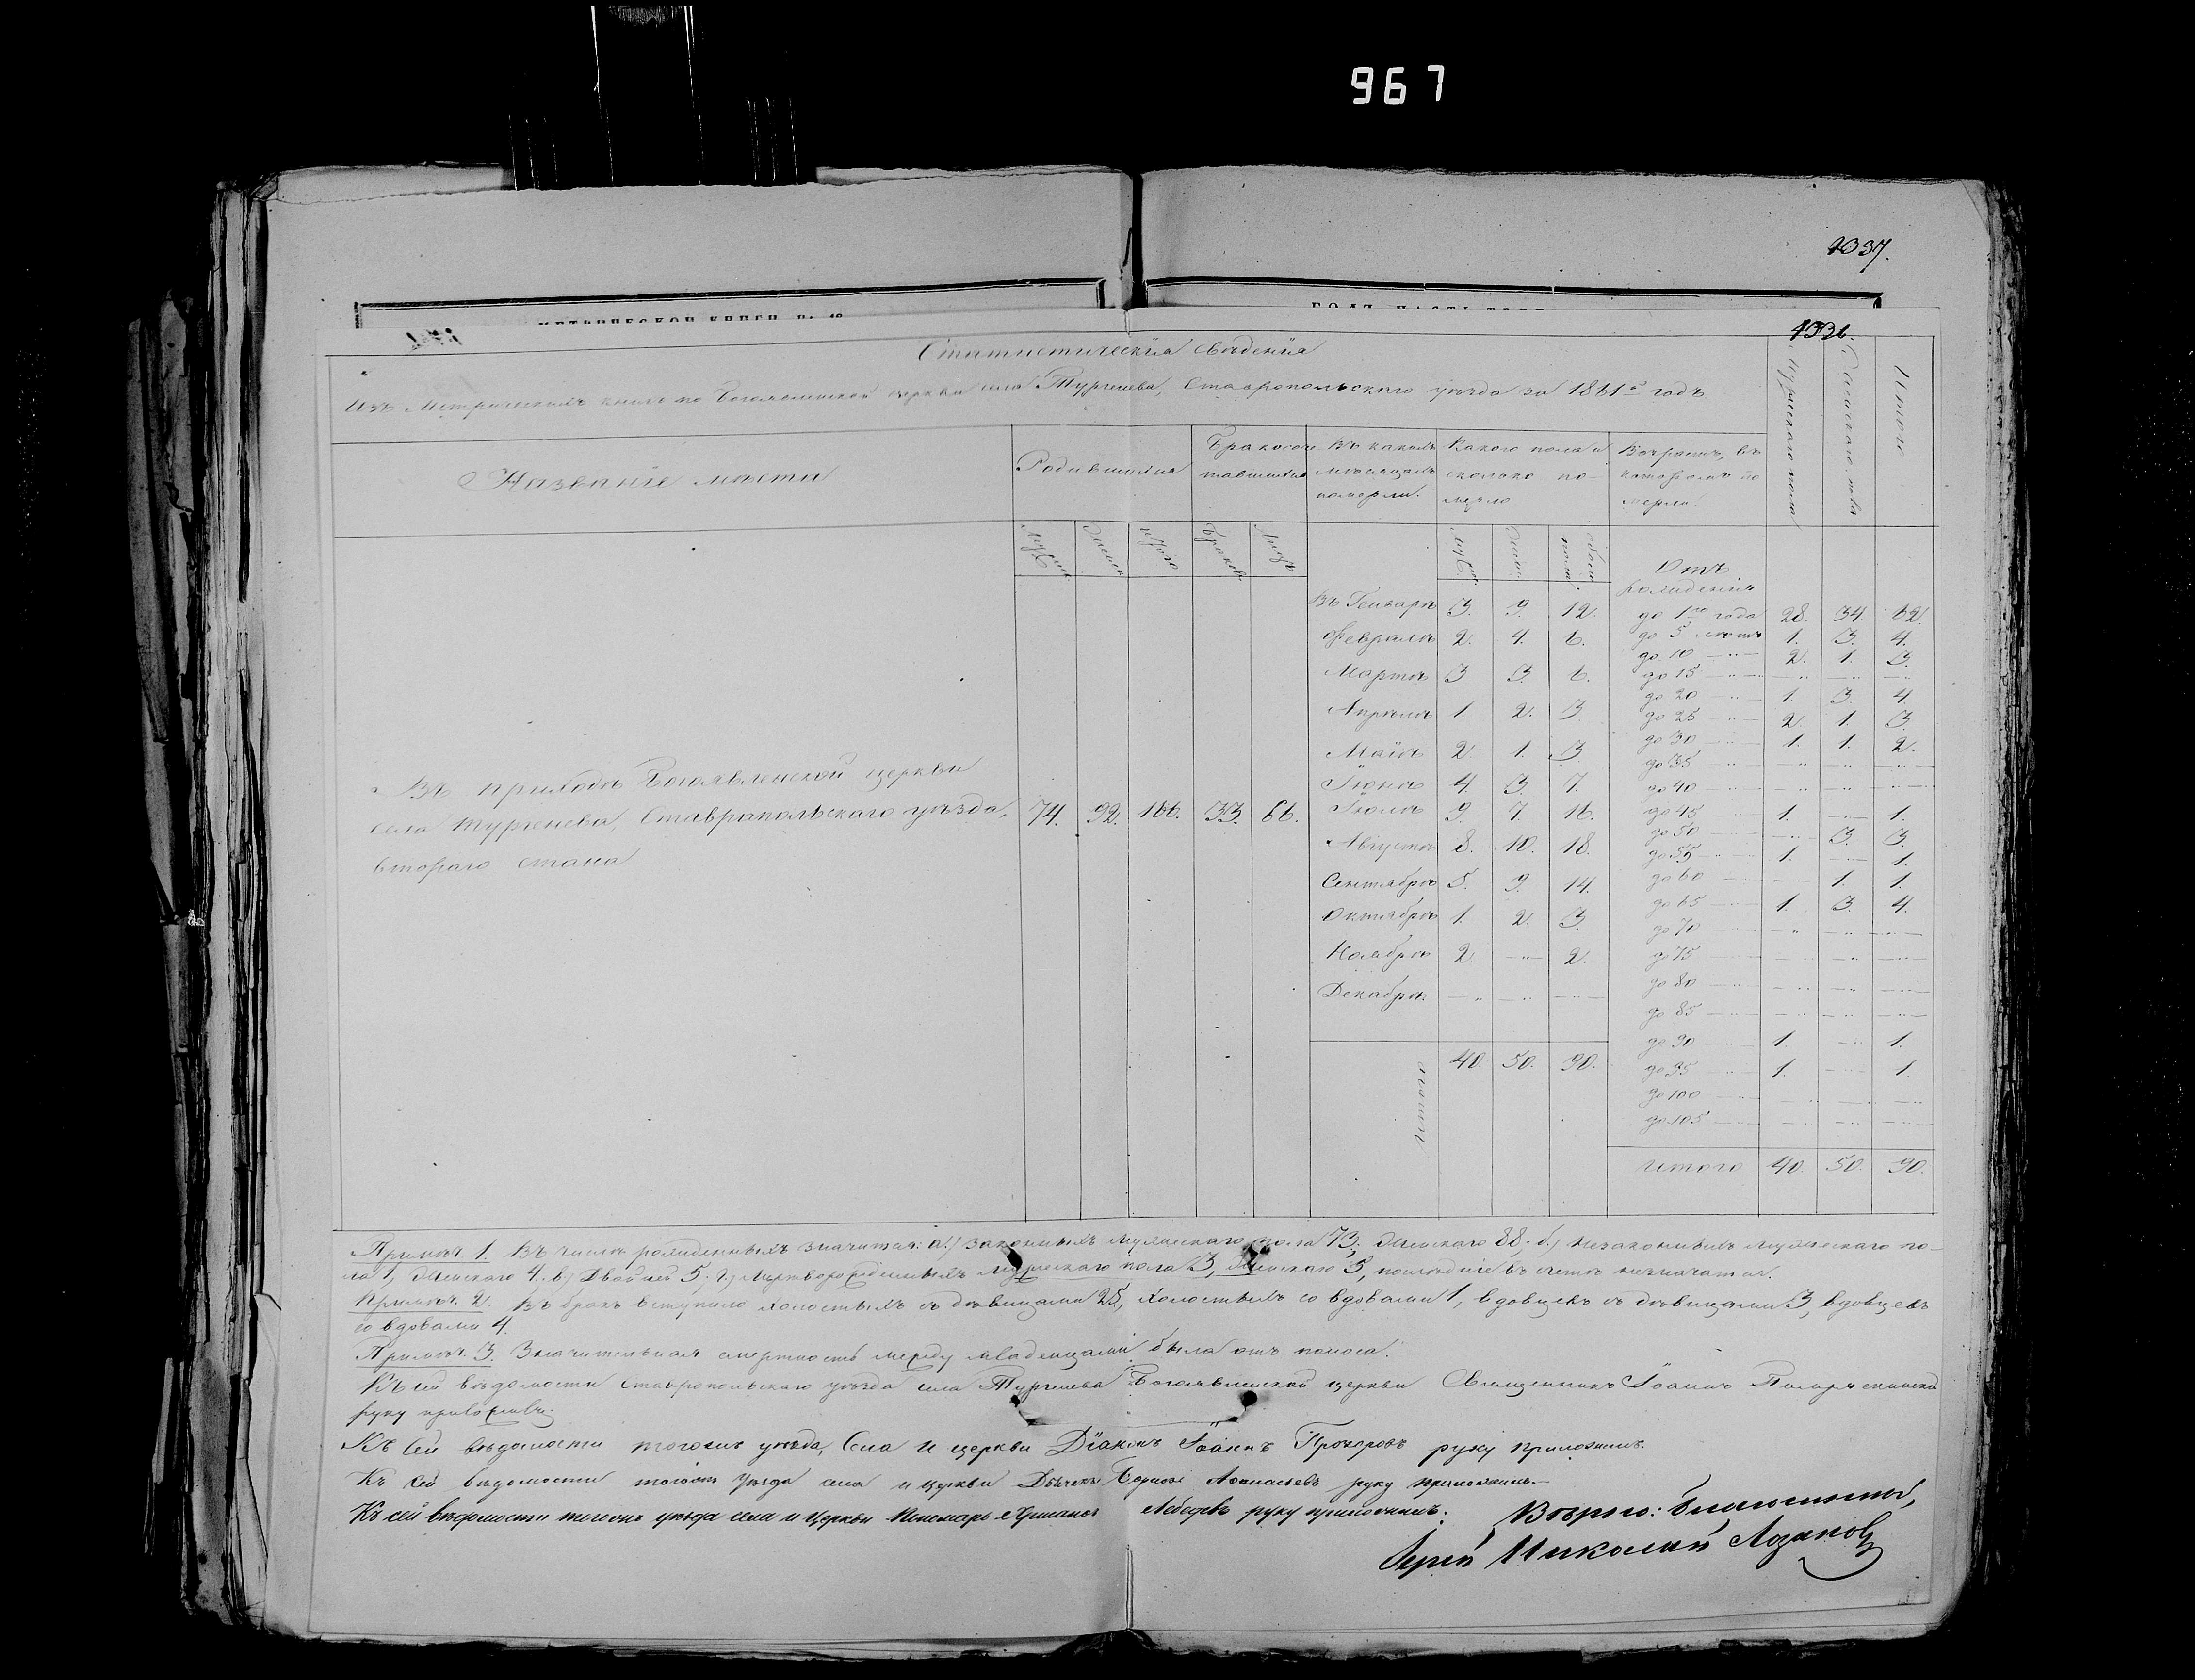 967
1037.
1036.
Статистическія свѣденія
Изъ Метрическихъ книгъ по Богоявленской церкви села Тургенева, Ставропольскаго уѣзда за 1861й годъ
Мужескаго пола
Женскаго пола
Итого
Названіе мѣста
Родившихся
Бракосоче
тавшихся
Въ какихъ
мѣсяцахъ
померли.
Какого пола и
сколько по-
мерло
Возрастъ, въ
которомъ по
мерли.
Муж.
Женск
Итого
Браковъ
Лицъ
Муж.
Женс.
Обоего
пола
Отъ
рожденія
Въ приходѣ Богоявленской церкви
села Тургенева, Ставропольскаго уѣзда,
втораго стана
74. 92. 166. 33. 66.
Въ Генварѣ 3. 9. 12.
Февралѣ 2. 4. 6.
Мартѣ 3 3. 6.
Апрѣлѣ 1. 2. 3
Маіѣ 2. 1. 3.
Іюнѣ 4. 3. 7.
Іюлѣ 9. 7. 16.
Августѣ 8. 10. 18.
Сентябрѣ 5. 9. 14.
Октябрѣ 1. 2. 3.
Ноябрѣ 2. — 2.
Декабрѣ — — —
Итого 40. 50. 90.
до 1го года 28. 34. 62.
до 5 лѣтъ 1. 3. 4.
до 10 — 2. 1. 3.
до 15 — — — —
до 20 — 1. 3. 4.
до 25 — 2. 1. 3
до 30 — 1. 1. 2.
до 35 — — — —
до 40 — — — —
до 45 — 1. — 1.
до 50 — — 3. 3.
до 55 — 1. — 1.
до 60 — — 1. 1.
до 65 — 1. 3. 4.
до 70 — — — —
до 75 — — — —
до 80 — — — —
до 85 — — — —
до 90 — 1. — 1.
до 95 — 1. — 1.
до 100 — — — —
до 105 — — — —
Итого 40. 50. 90.
Примѣч. 1. Въ числѣ рожденныхъ значится: а.) законныхъ мужескаго пола 73, женскаго 88. б.) незаконныхъ мужескаго по-
ла 1, женскаго 4. в.) Двойней 5; г.) мертворожденныхъ мужескаго пола 3, женскаго 5, послѣдніе въ счетѣ незначатся.
Примѣч. 2. Въ бракъ вступило холостыхъ съ дѣвицами 25, холостыхъ со вдовами 1, вдовцевъ съ дѣвицами 3, вдовцевъ
со вдовами 4.
Примѣч. 3. Значительная смертность между младенцами была отъ поноса.
Къ сей вѣдомости Ставропольскаго уѣзда села Тургенева Богоявленской церкви Священникъ Іоаннъ
руку приложилъ.
Къ сей вѣдомости тогожъ уѣзда, села и церкви Діаконъ Іоаннъ Прохоровъ руку приложилъ.
Къ сей вѣдомости тогожъ уѣзда села и церкви Дьячекъ Аѳанасьевъ руку приложилъ.—
Къ сей вѣдомости тогожъ уѣзда села и церкви Пономарь Лебедевъ руку приложилъ. Вѣрно: Благочинный,
Іерей Николай Лозановъ